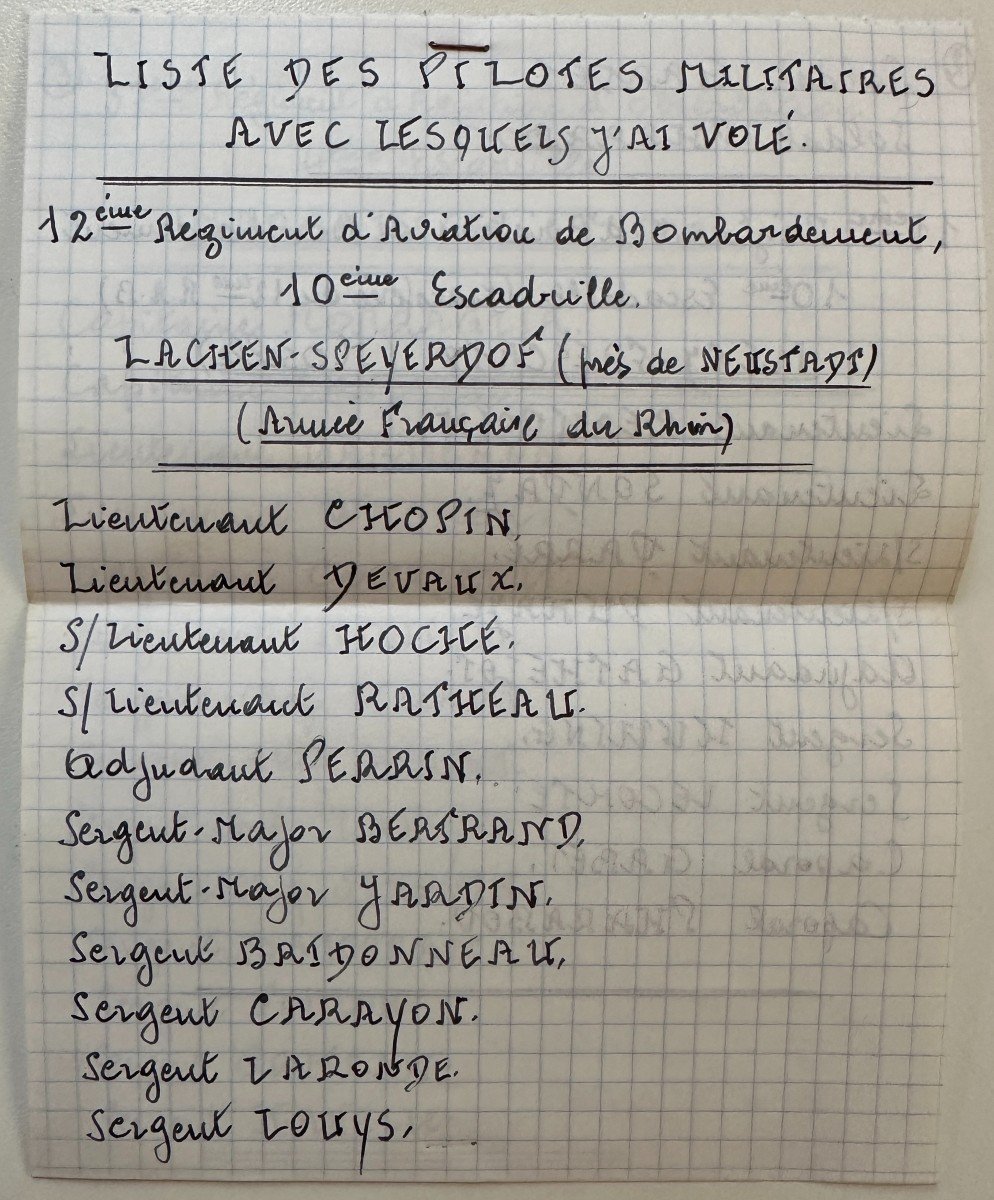 LISTE DES PILOTES MILITAIRES
AVEC LESQUELS J'AI VOLÉ.
12ème Régiment d'Aviation de Bombardement,
10ème Escadrille.
LACHEN-SPEYERDOF (près de NEUSTADT)
(Armée Française du Rhin)
Lieutenant CHOPIN,
Lieutenant DEVAUX.
S/Lieutenant HOCHE.
S/Lieutenant RATHEAU.
Adjudant PERRIN.
Sergent-Major BERTRAND.
Sergent-Major JARDIN.
Sergent BAIDONNEAU.
Sergent CARAYON.
Sergent LARONDE.
Sergent LOUYS.